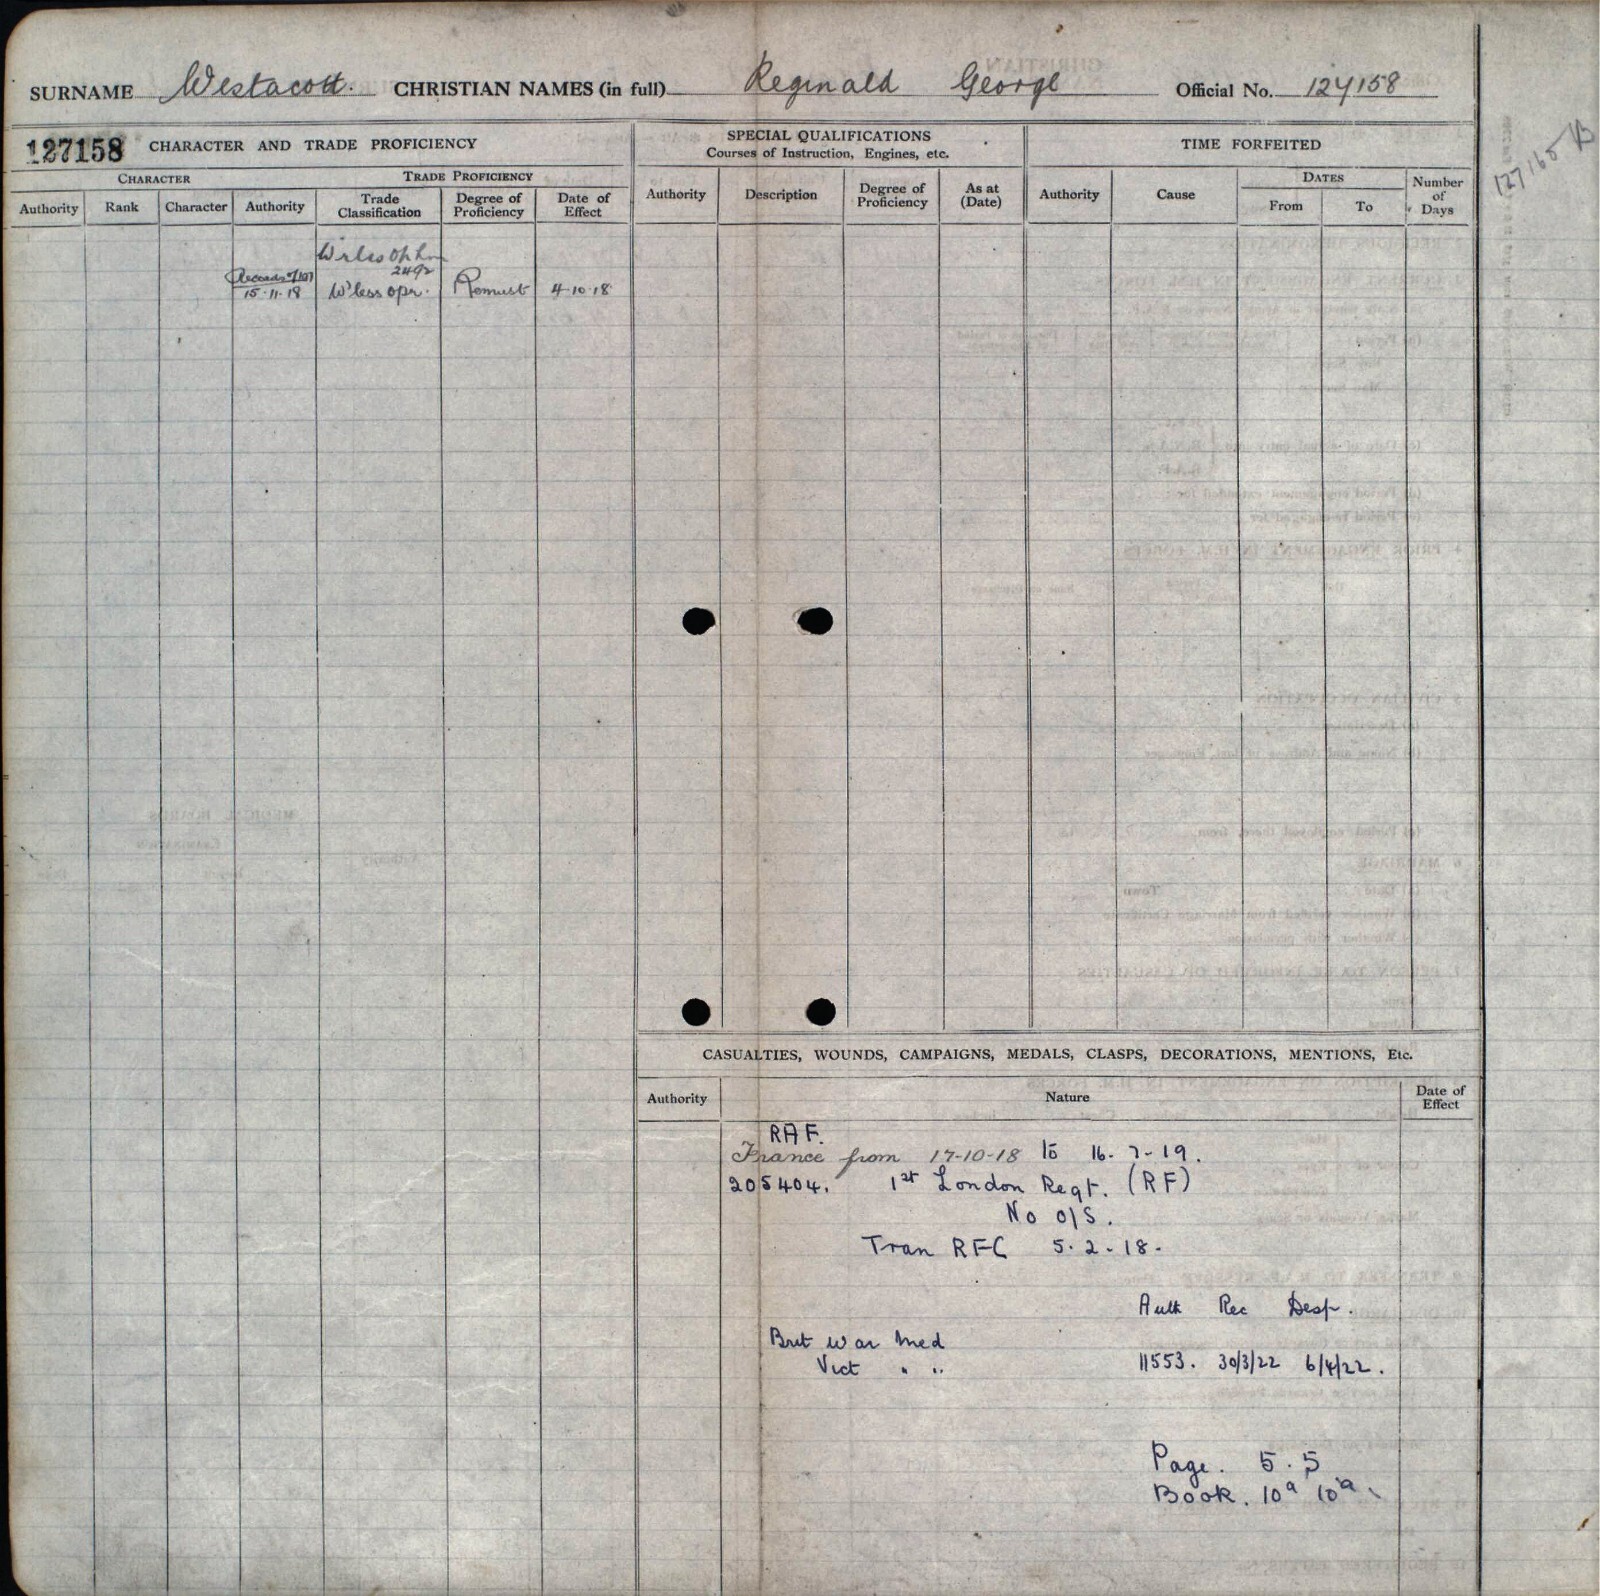 SURNAME Westacott. CHRISTIAN NAMES (in full) Reginald George Official No. 127158
127158 CHARACTER AND TRADE PROFICIENCY
SPECIAL QUALIFICATIONS
Courses of Instruction, Engines, etc.
TIME FORFEITED
CHARACTER
TRADE PROFICIENCY
Authority Rank Character Authority Trade Classification Degree of Proficiency Date of Effect
Authority Description Degree of Proficiency As at (Date)
Authority Cause DATES From To Number of Days
127165
2492
15.11.18 W'less opr. Remust 4.10.18
CASUALTIES, WOUNDS, CAMPAIGNS, MEDALS, CLASPS, DECORATIONS, MENTIONS, Etc.
Authority Nature Date of Effect
RAF.
France from 17-10-18 to 16-7-19.
205404. 1st London Regt. (RF)
No O/S.
Tran RFC 5.2.18.
Auth Rec Desp.
Brit War Med
Vict " " 11553. 30/3/22 6/4/22.
Page. 5. 5
Book. 10a 10a